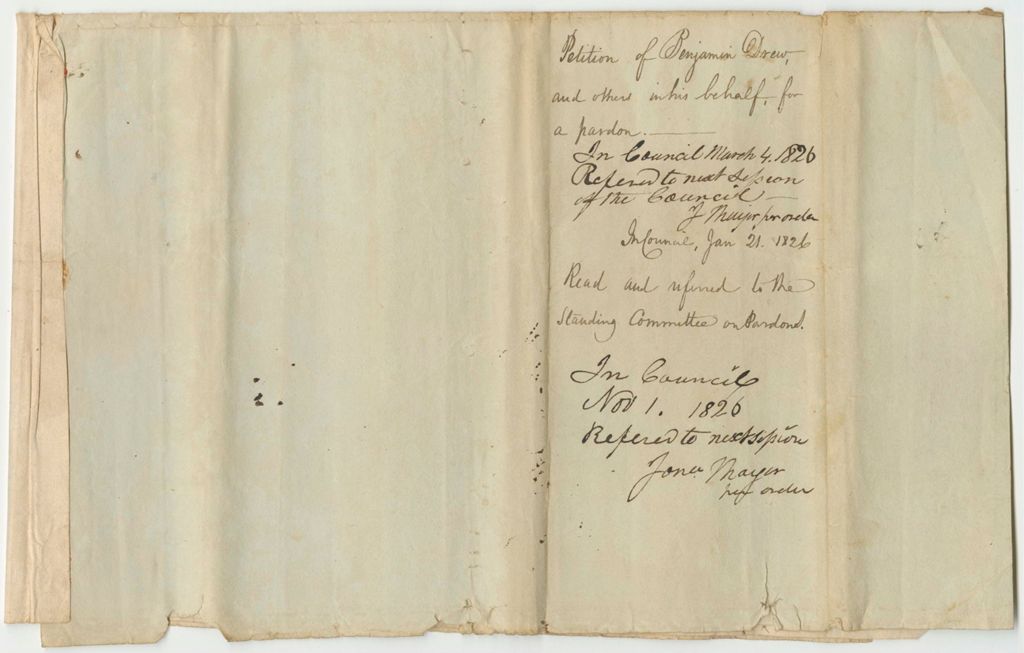 Petition of Benjamin Drew,
and others in his behalf, for
a pardon.
In Council March 4. 1826
Refered to next Session
of the Council
J Mayer per order
In Council, Jan 21. 1826
Read and referred to the
Standing Committee on Pardons.
In Council
Nov 1. 1826
Refered to next Session
Jona Mayer
per order